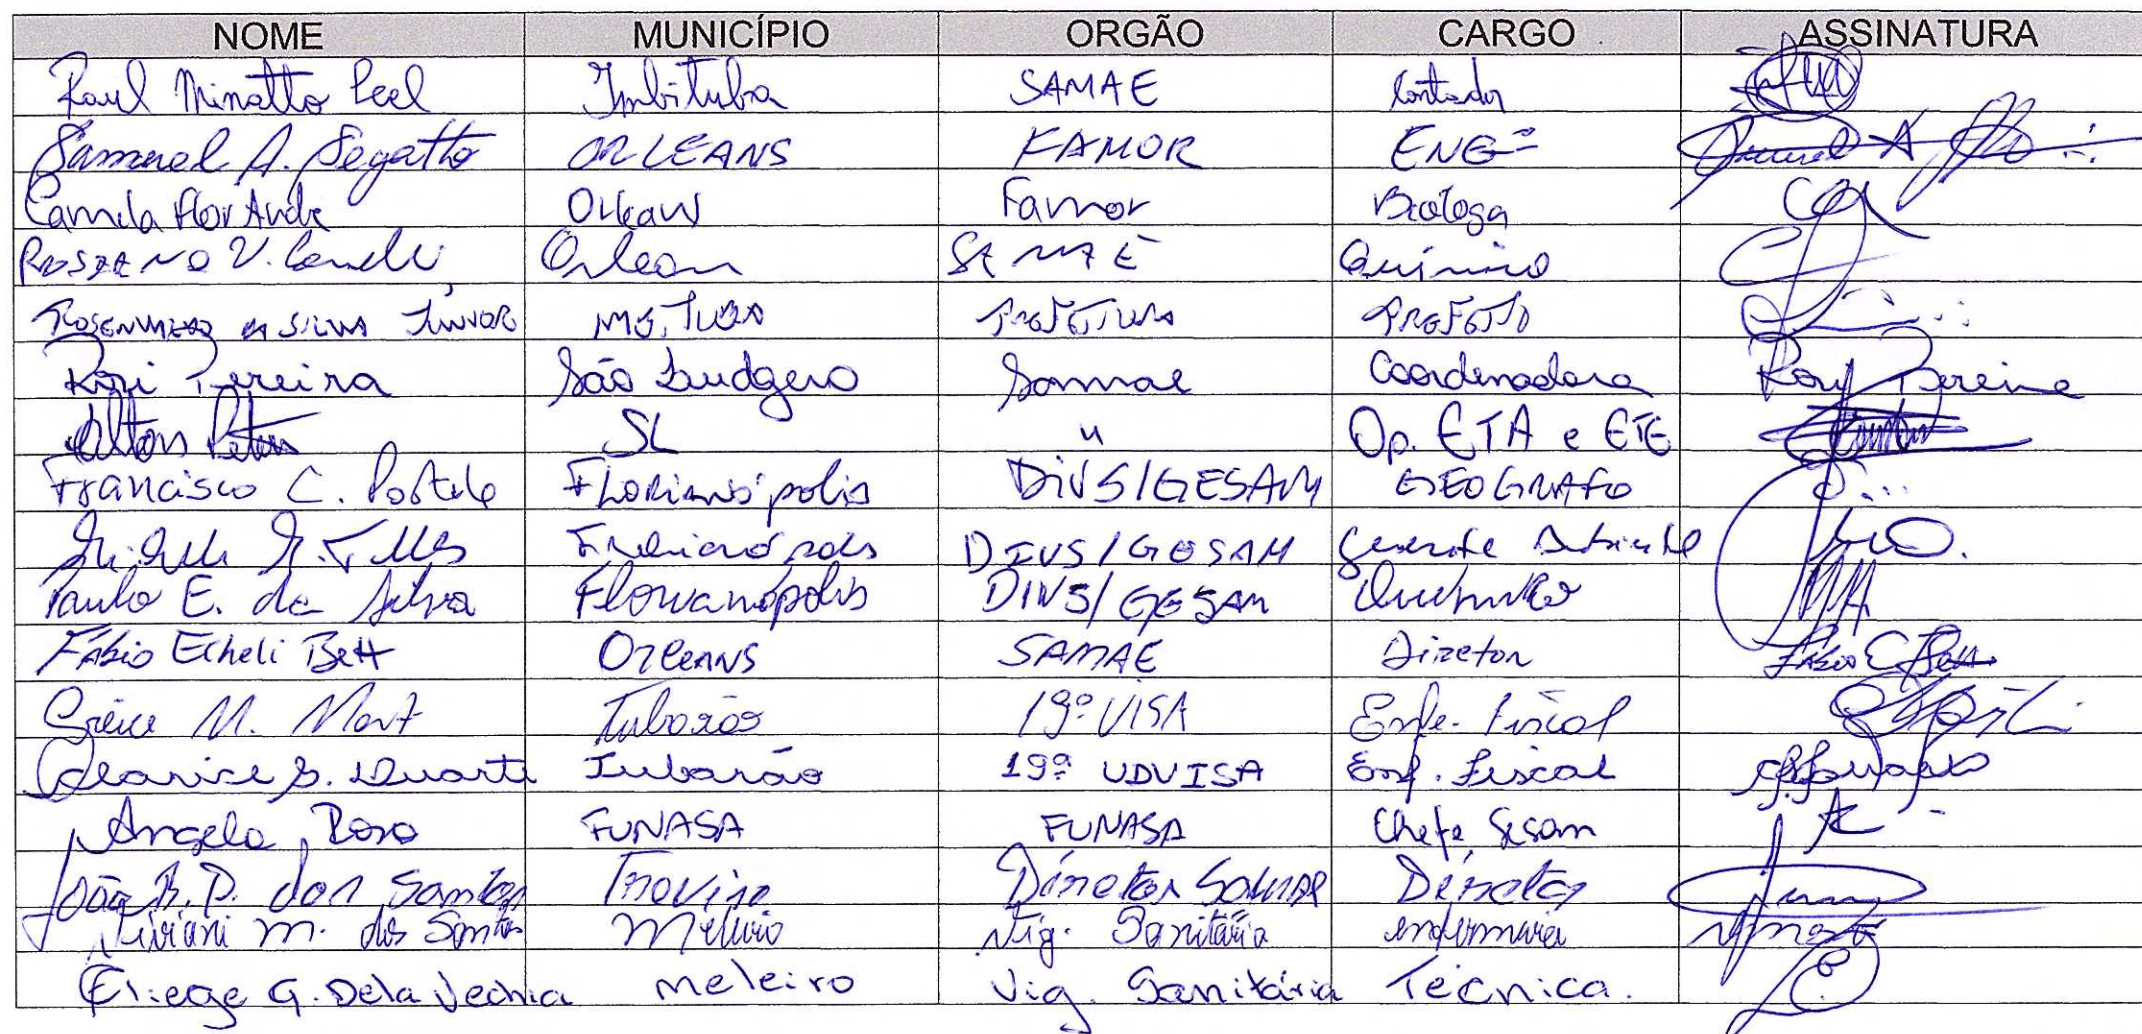 NOME MUNICÍPIO ORGÃO CARGO ASSINATURA
Raul Minatto Leel Imbituba SAMAE Contador
Samuel A. Segatto ORLEANS FAMOR ENGº
Camila Flor Orleans Famor Bióloga
V. Orleans SAMAE Químico
DA SILVA JÚNIOR PREFEITURA PREFEITO
Rosi Pereira São Ludgero Samae Coordenadora Rosy Pereira
SL " Op. ETA e ETE
Francisco C. Florianópolis DIVS/GESAM GEOGRAFO
Florianópolis DIVS/GESAM Gerente
Paulo E. da Silva Florianópolis DIVS/GESAM
Fábio Echeli Bett ORLEANS SAMAE Diretor Fábio E. Bett
M. Tubarão 19ª VISA Enfe. Fiscal
Clarice B. Duarte Tubarão 19ª UDVISA Enf. Fiscal
Angela FUNASA FUNASA Chefe Sesam
João B. P. dos Santos Treviso Diretor Diretor
Viviani M. dos Santos Meleiro Vig. Sanitária enfermeira
Eliege G. Dela Vechia meleiro Vig. Sanitária Técnica.